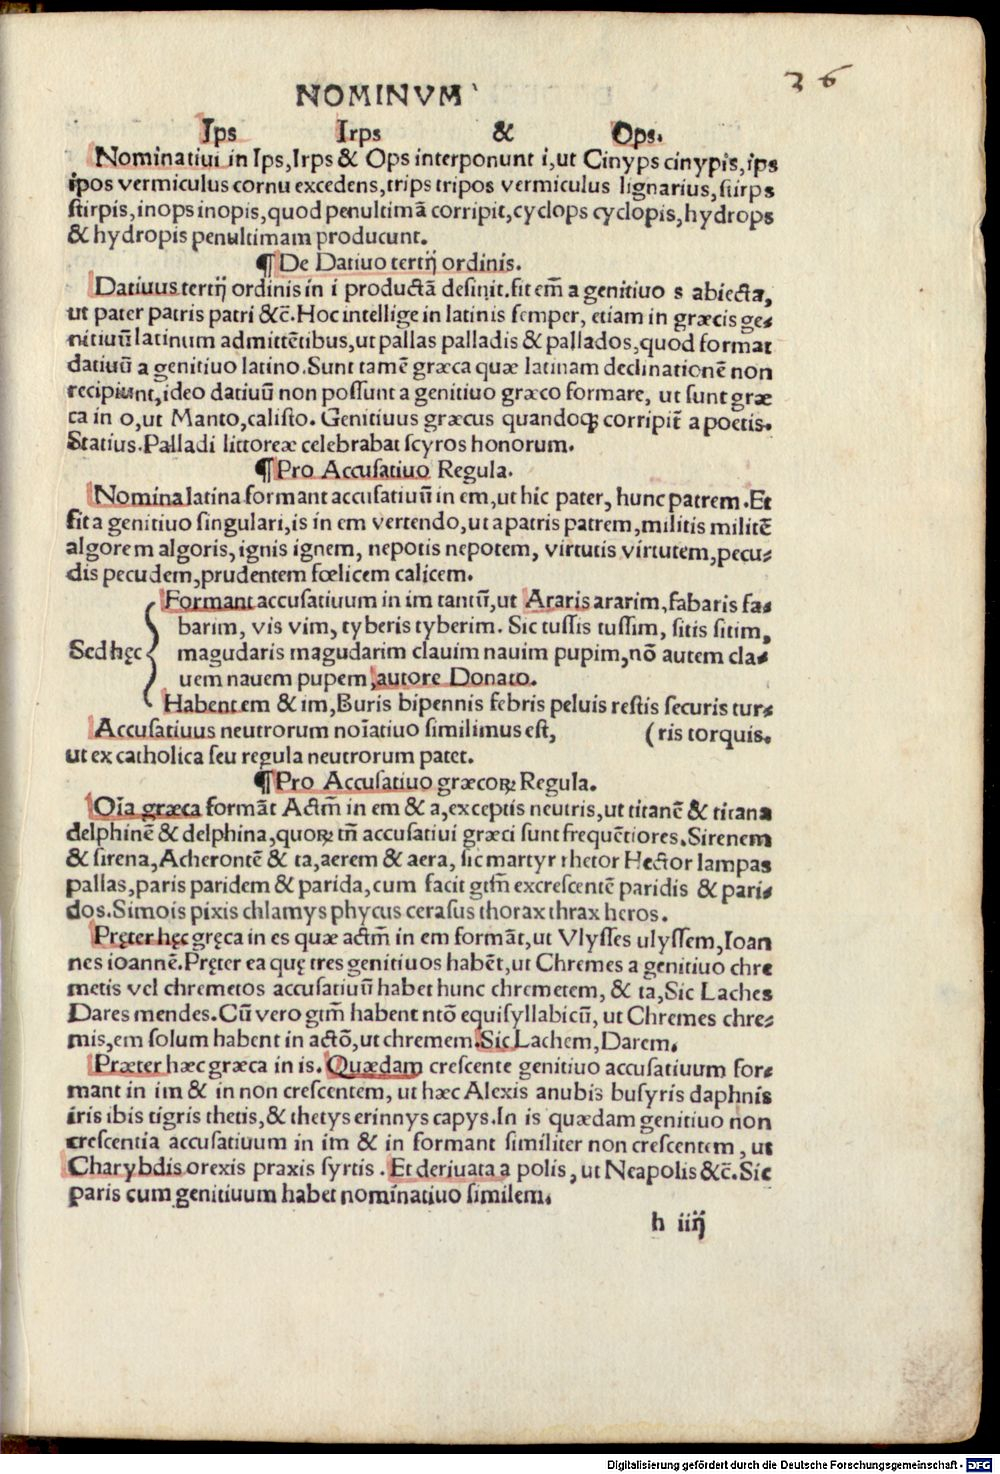 36
NOMINVM
Ips Irps & Ops.
Nominatiui in Ips,Irps & Ops interponunt i,ut Cinyps cinypis,ips
ipos vermiculus cornu excedens,trips tripos vermiculus lignarius,stirps
stirpis,inops inopis,quod penultimā corripit,cyclops cyclopis,hydrops
& hydropis penultimam producunt.
¶ De Datiuo tertij ordinis.
Datiuus tertij ordinis in i productā desinit.fit em̄ a genitiuo s abiecta,
ut pater patris patri &c̄.Hoc intellige in latinis semper, etiam in græcis ge-
nitiuū latinum admittētibus,ut pallas palladis & pallados,quod format
datiuū a genitiuo latino.Sunt tamē græca quæ latinam declinationē non
recipiunt,ideo datiuū non possunt a genitiuo græco formare, ut sunt græ
ca in o,ut Manto,calisto. Genitiuus græcus quandoqꝫ corripit̄ a poetis.
Statius.Palladi littoreæ celebrabat scyros honorum.
¶ Pro Accusatiuo Regula.
Nomina latina formant accusatiuū in em,ut hic pater, hunc patrem.Et
fit a genitiuo singulari,is in em vertendo,ut a patris patrem,militis militē
algorem algoris, ignis ignem, nepotis nepotem, virtutis virtutem,pecu-
dis pecudem,prudentem fœlicem calicem.
Formant accusatiuum in im tantū,ut Araris ararim,fabaris fa-
barim, vis vim, tyberis tyberim. Sic tussis tussim, sitis sitim,
Sed hęc magudaris magudarim clauim nauim pupim,nō autem cla-
uem nauem pupem,autore Donato.
Habent em & im,Buris bipennis febris peluis restis securis tur-
Accusatiuus neutrorum noīatiuo similimus est, (ris torquis.
ut ex catholica seu regula neutrorum patet.
¶ Pro Accusatiuo græcoꝝ Regula.
Oīa græca formāt Actm̄ in em & a,exceptis neutris,ut titanē & titana
delphinē & delphina,quoꝝ tn̄ accusatiui græci sunt frequētiores.Sirenem
& sirena,Acherontē & ta,aerem & aera, sic martyr rhetor Hector lampas
pallas,paris paridem & parida,cum facit gtm̄ excrescentē paridis & pari-
dos.Simois pixis chlamys phycus cerasus thorax thrax heros.
Pręter hęc gręca in es quæ actm̄ in em formāt,ut Vlysses ulyssem,Ioan
nes ioannē.Pręter ea quę tres genitiuos habēt,ut Chremes a genitiuo chre
metis vel chremetos accusatiuū habet hunc chremetem, & ta,Sic Laches
Dares mendes.Cū vero gtm̄ habent ntō equisyllabicū, ut Chremes chre-
mis,em solum habent in actō,ut chremem.Sic Lachem,Darem.
Præter hæc græca in is. Quædam crescente genitiuo accusatiuum for-
mant in im & in non crescentem, ut hæc Alexis anubis busyris daphnis
iris ibis tigris thetis,& thetys erinnys capys.In is quædam genitiuo non
crescentia accusatiuum in im & in formant similiter non crescentem, ut
Charybdis orexis praxis syrtis . Et deriuata a polis, ut Neapolis &c̄.Sic
paris cum genitiuum habet nominatiuo similem.
h iiij
Digitalisierung gefördert durch die Deutsche Forschungsgemeinschaft - DFG